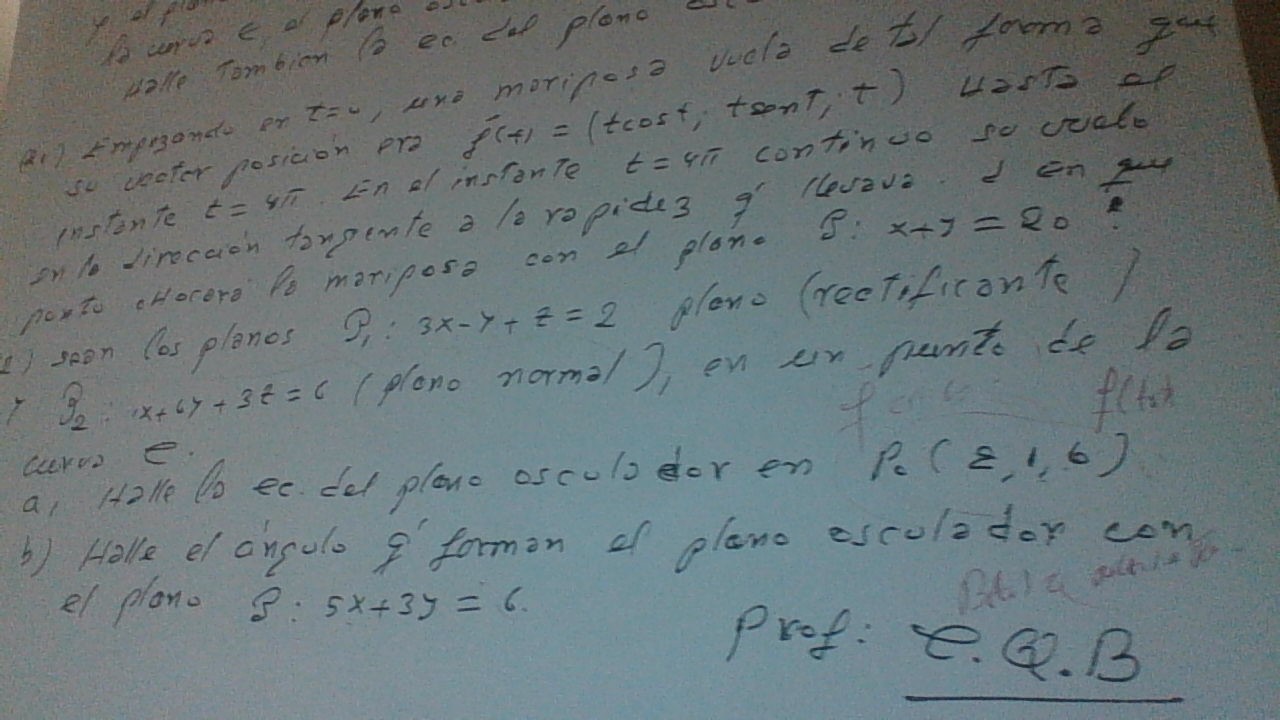 la curva C, al plano
Halle Tambien la ec. del plano
21) Empezando en t=0, una mariposa vuela de tal forma que
su vector posición era f(t) = (tcost; tsent; t) Hasta el
instante t = 4π. En el instante t = 4π continuo su vuelo
en la dirección tangente a la rapidez q' llevava. d en que
punto chocara la mariposa con el plano P: x+y = 20 ?
sean los planos P₁: 3x-y+z=2 plano (rectificante)
y P₂: x+6y+3z=6 (plano normal), en un punto de la
curva C.
a) Halle la ec. del plano osculador en P₀(2,1,6)
b) Halle el ángulo q' forman el plano osculador con
el plano P: 5x+3y=6.
Prof: C.Q.B